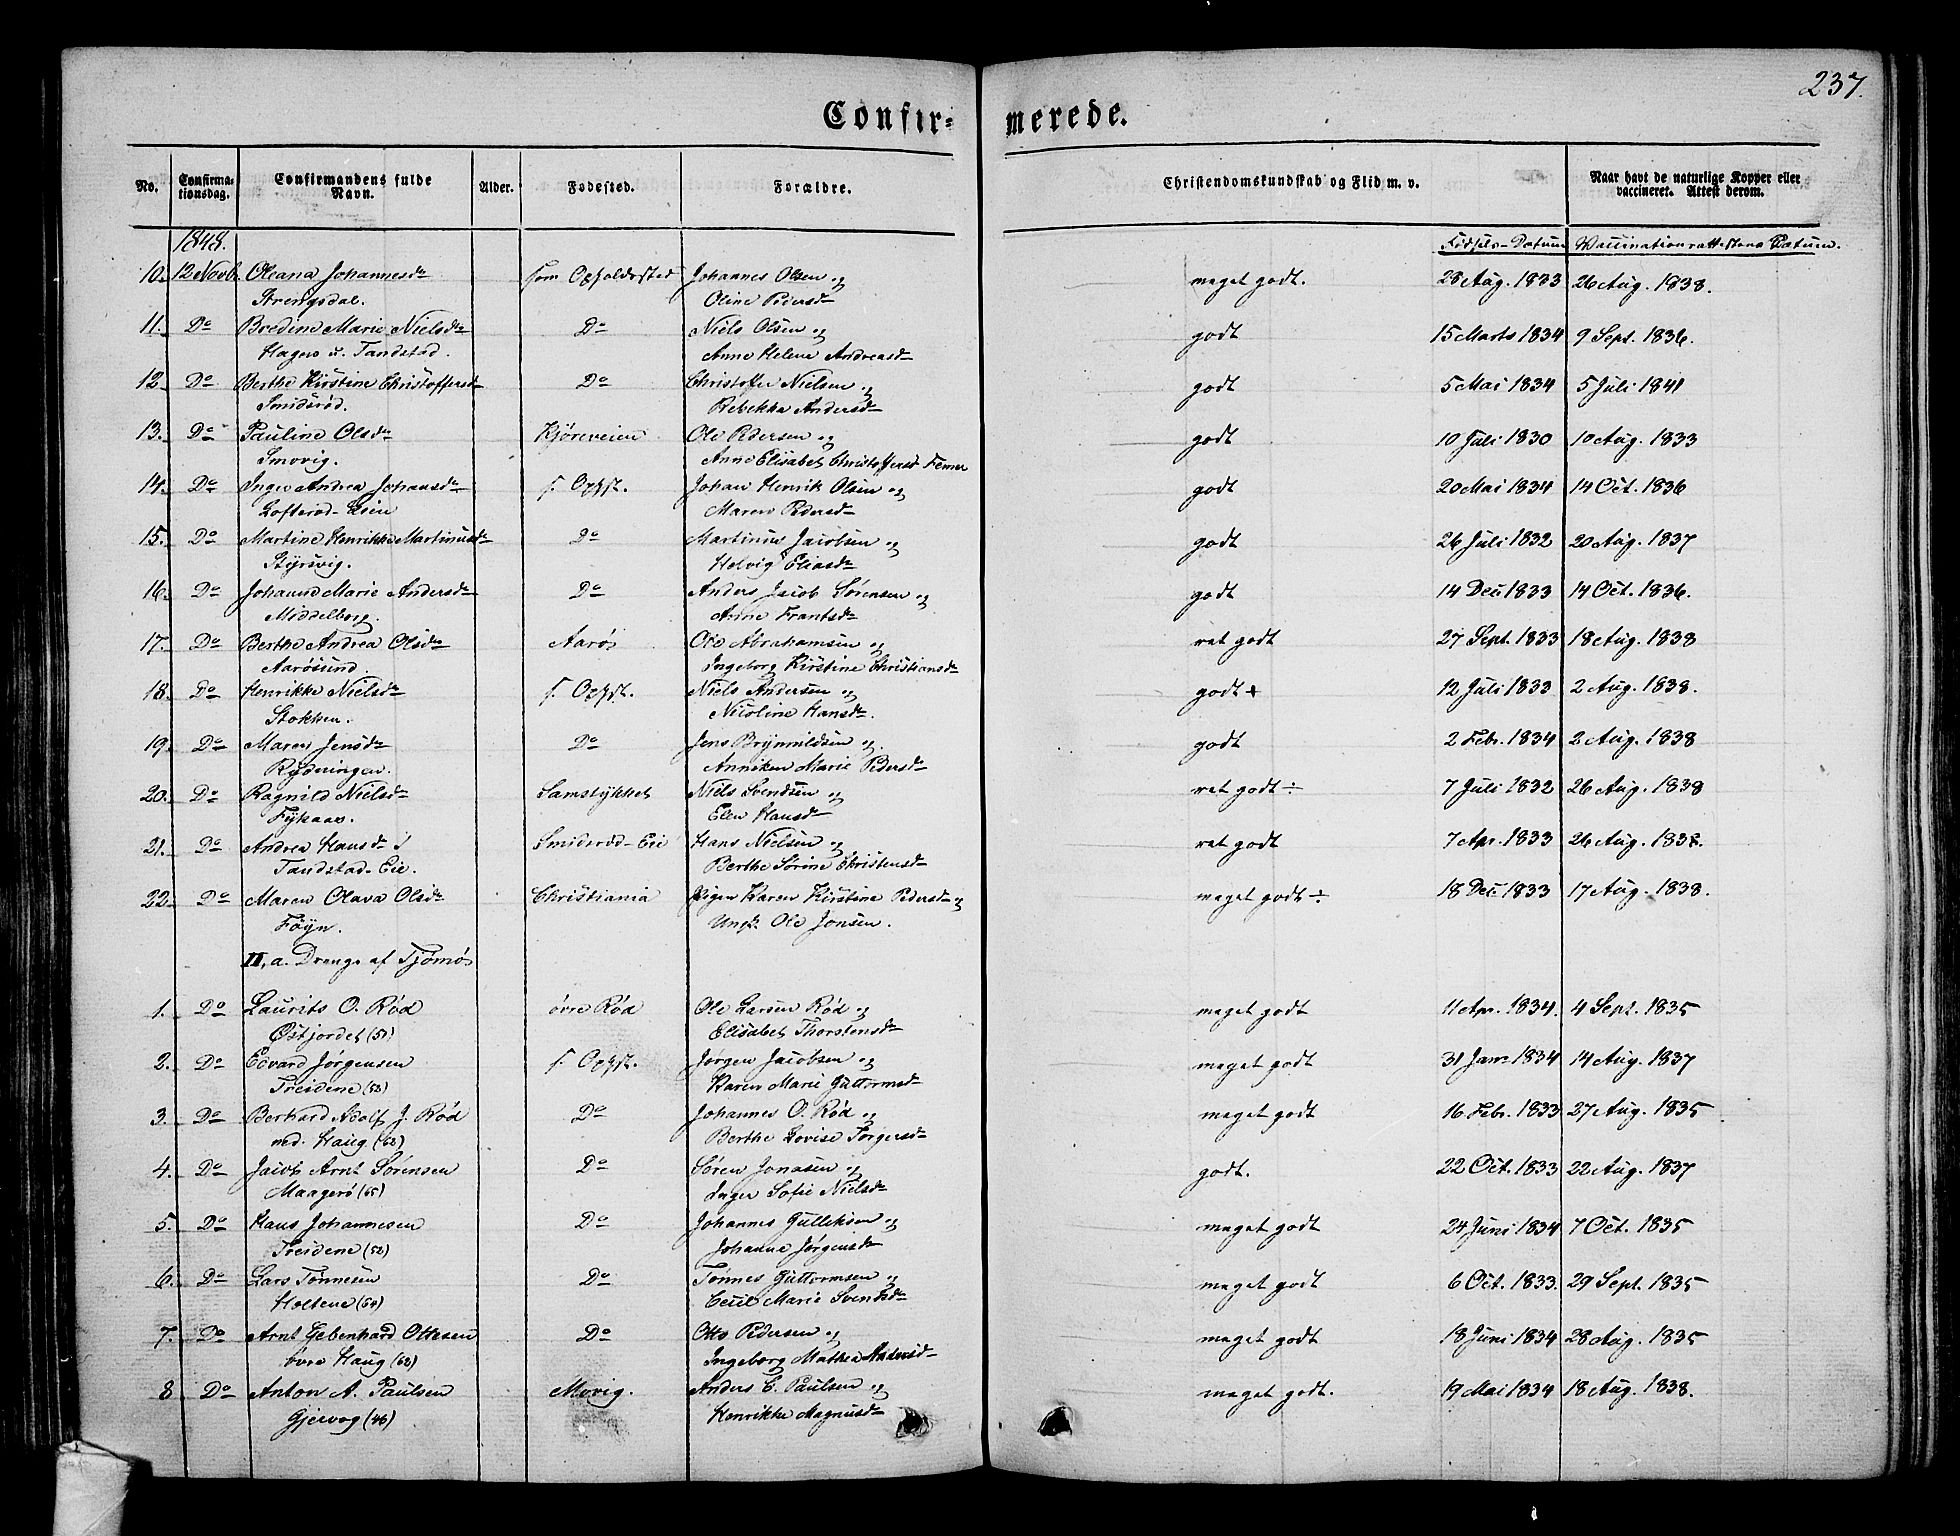 237.
Confirmerede.
No. Confirmationsdag. Confirmandens fulde Navn. Alder. Fødested. Forældre. Christendomskundskab og Flid m. v. Naar havt de naturlige Kopper eller vaccineret. Attest derom.
1848. Fødsels-Datum Vaccinationsattestens Datum.
10. 12 Novb. Oleana Johannesdr som Opholdssted Johannes Olsen og meget godt. 28 Aug. 1833 26 Aug. 1838.
Strengsdal. Oline Pedersdr
11. Do Bredine Marie Nielsdr Do Niels Olsen og godt 15 Marts 1834 9 Sept. 1836.
Hagen u. Tandstad. Anne Helene Andreasdr
12. Do Berthe Kirstine Christoffersdr Do Christoffer Nielsen og godt 5 Mai 1834 5 Juli 1841
Smidsrød. Rebekka Andersdr
13. Do Pauline Olsdr Kjøreveien Ole Pedersen og godt 10 Juli 1830 10 Aug. 1833
Smovig. Anne Elisabet Christoffersdr Femer
14. Do Inger Andrea Johansdr s. Ophst. Johan Henrik Olsen og godt 20 Mai 1834 14 Oct. 1836
Lofterød-Eien Maren Pedersdr
15. Do Martine Henrikke Martinusdr Do Martinus Jacobsen og godt 26 Juli 1832 20 Aug. 1837
Styrsvig. Helvig Eliasdr
16. Do Johanne Marie Andersdr Do Anders Jacob Sørensen og godt 14 Dec 1833 14 Oct. 1836.
Middelborg. Anne Frantsdr
17. Do Berthe Andrea Olsdr Aarøs Ole Abrahamsen og ret godt 27 Sept. 1833 18 Aug. 1838
Aarøsund. Ingeborg Kirstine Christiansdr
18. Do Henrikke Nielsdr s. Ophst. Niels Andersen og godt + 12 Juli 1833 2 Aug. 1838.
Stokken. Nicoline Hansdr.
19. Do Maren Jensdr Do Jens Brynnildsen og godt 2 Febr. 1834 2 Aug. 1838
Rydningen. Anniken Marie Pedersdr
20. Do Ragnild Nielsdr Samstykket Niels Svendsen og ret godt ÷ 7 Juli 1832 26 Aug. 1838
Fykaas. Elen Hansdr
21. Do Andrea Hansdr Smidsrød-Eie Hans Nielsen og ret godt 7 Apr. 1833 26 Aug. 1838.
Tandstad-Eie. Berthe Sørine Christensdr
22. Do Maren Olava Olsdr Christiania Pigen Karen Kirstine Pedersdr og meget godt ÷ 18 Dec 1833 17 Aug. 1838.
Føyn. Ungk. Ole Jonsen.
II, a. Drenge af Tjømø
1. Do Laurits O. Rød øvre Rød Ole Larsen Rød og meget godt 11 Apr. 1834. 4 Sept. 1835
Østjordet (51) Elisabet Thorstensdr
2. Do Edvard Jørgensen s. Ophst. Jørgen Jacobsen og meget godt 31 Janr 1834 14 Aug. 1837
Treidene (52) Karen Marie Guttormsdr
3. Do Bernhard Adolf J. Rød Do Johannes O. Rød og meget godt 16 Febr. 1833 27 Aug. 1835
ned. Haug (62) Berthe Lovise Torgersdr
4. Do Jacob Arnt Sørensen Do Søren Jonasen og godt. 22 Oct. 1833 22 Aug. 1837
Maagerø (65) Inger Sofie Nielsdr
5. Do Hans Johannesen Do Johannes Gulliksen og meget godt 24 Juni 1834 7 Oct. 1835
Treidene (52) Johanne Jørgensdr
6. Do Lars Tønnesen Do Tønnes Guttormsen og meget godt 6 Oct. 1833. 29 Sept. 1835
Holtene (64) Cecil Marie Svendsdr
7. Do Arnt Gebenhard Ottesen Do Otto Pedersen og meget godt 18 Juni 1834 28 Aug. 1835
øvre Haug (62) Ingeborg Mathea Andersdr
8 Do Anton A. Paulsen Movig. Anders C. Paulsen og meget godt. 19 Mai 1834 18 Aug. 1838.
Gjervog (46) Henrikke Magnusdr